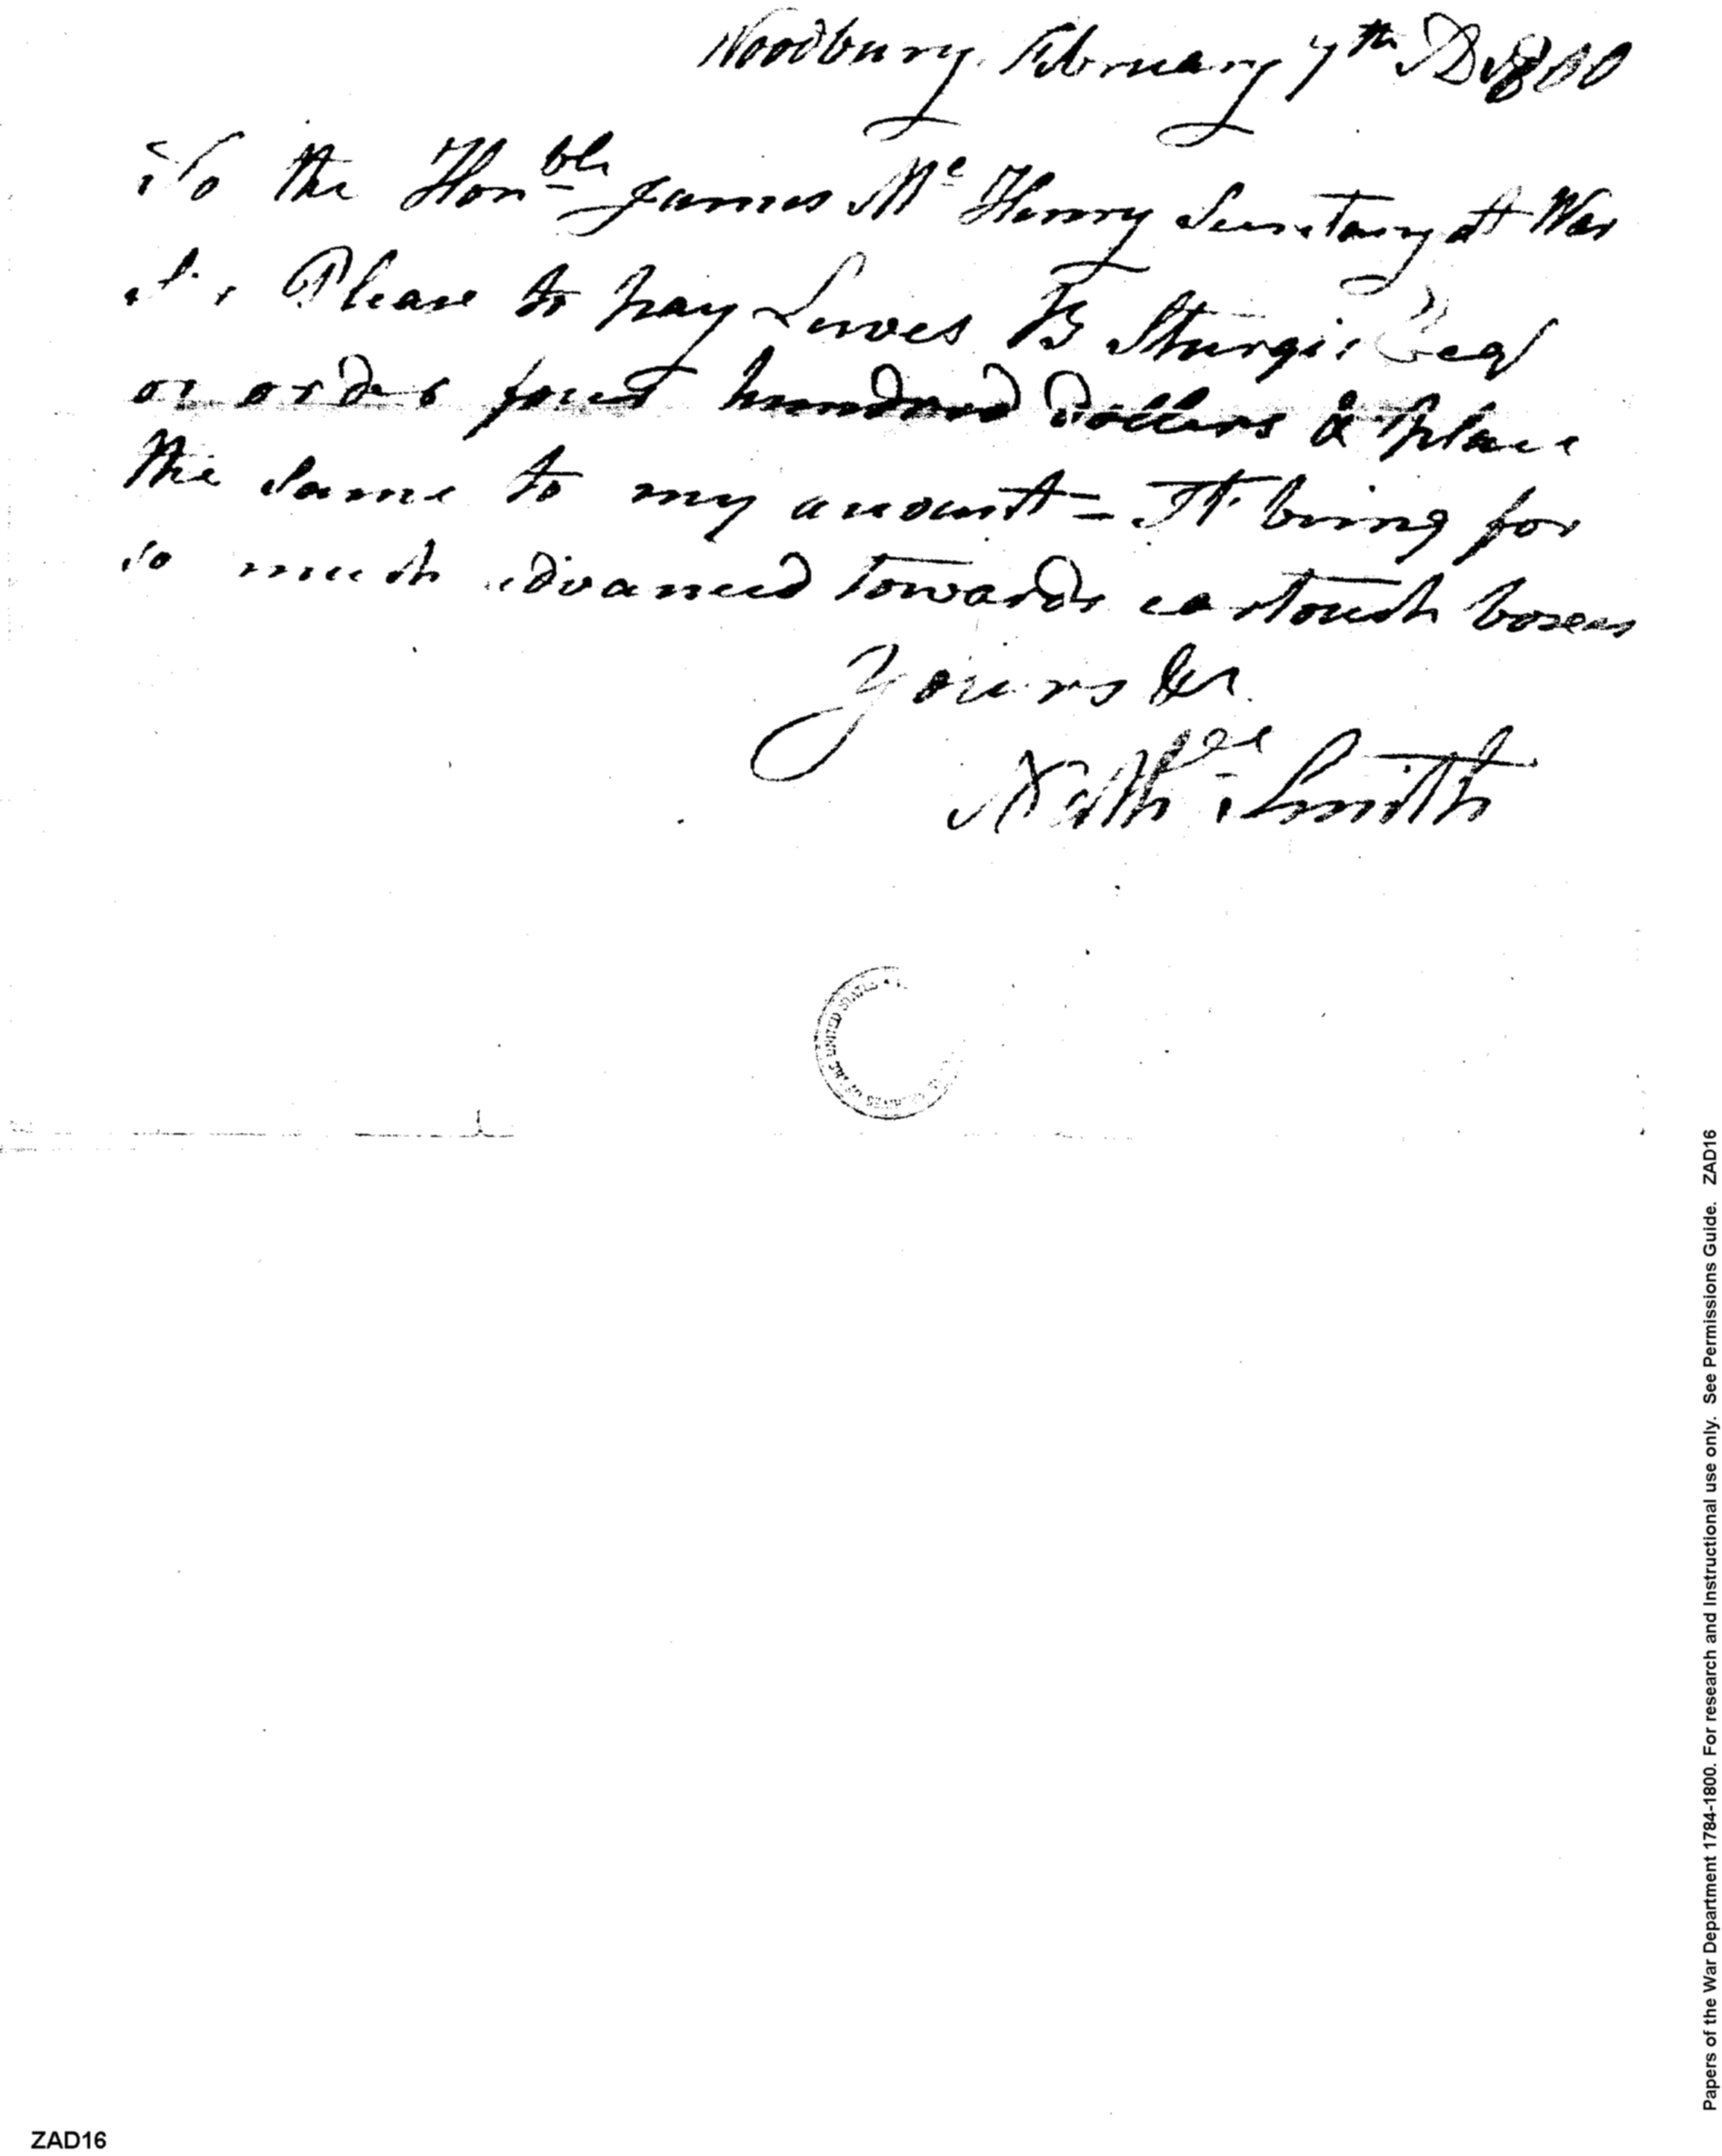 Woodbury February 7th AD 1800
To the Honble James McHenry Secretary at War
Sir Please to pay Lewes B Sturgis Esq
or order four hundred Dollers & place
the same to my account = It being for
so much advanced towards cartouch boxes
Yours &c
Nathll Smith
UNITED STATES
ZAD16
Papers of the War Department 1784-1800. For research and Instructional use only. See Permissions Guide. ZAD16